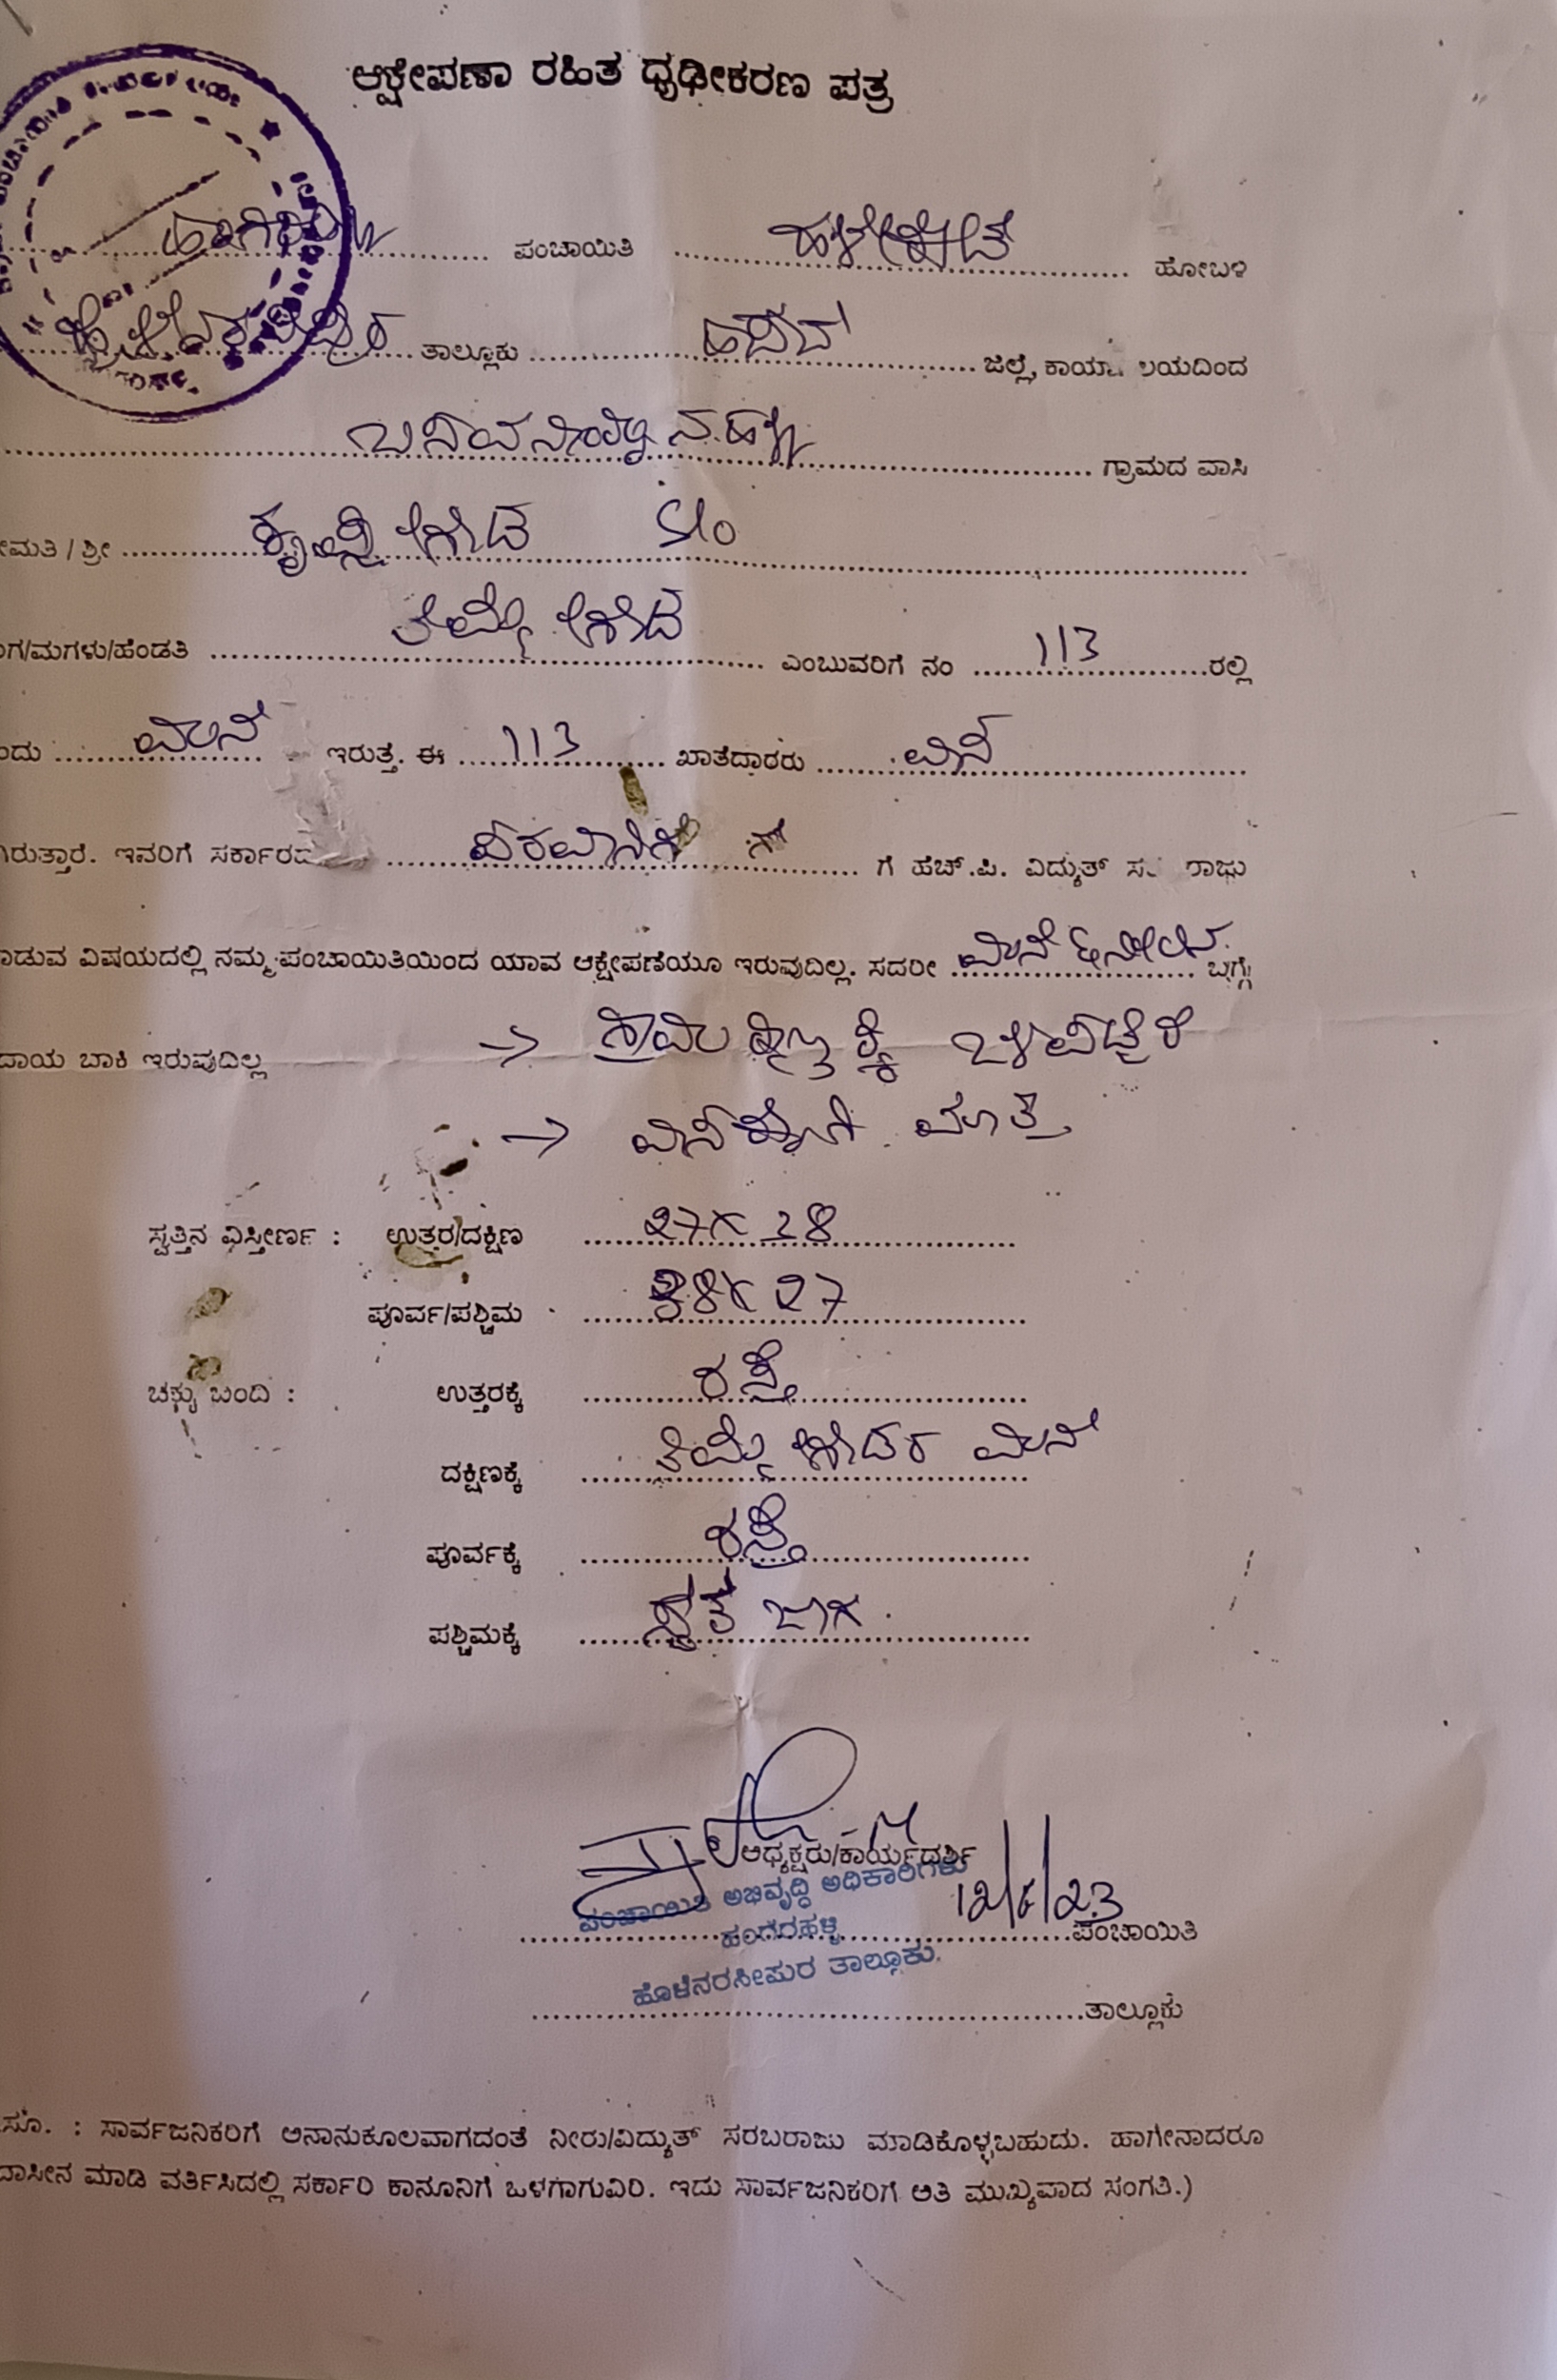 ಆಕ್ಷೇಪಣಾ ರಹಿತ ಧೃಢೀಕರಣ ಪತ್ರ
ಪಂಚಾಯಿತಿ ಹಳೇಕೋಟೆ ಹೋಬಳಿ
ತಾಲ್ಲೂಕು ಹಾಸನ ಜಿಲ್ಲೆ, ಕಾರ್ಯಾಲಯದಿಂದ
ಗ್ರಾಮದ ವಾಸಿ
ಮತಿ / ಶ್ರೀ ಕೃಷ್ಣೇಗೌಡ S/o
ಗ/ಮಗಳು/ಹೆಂಡತಿ ತಿಮ್ಮೇಗೌಡ ಎಂಬುವರಿಗೆ ನಂ 113 ರಲ್ಲಿ
ಂದು ಮನೆ ಇರುತ್ತೆ. ಈ 113 ಖಾತೆದಾರರು
ಗಿರುತ್ತಾರೆ. ಇವರಿಗೆ ಸರ್ಕಾರದ ಗೆ ಹೆಚ್.ಪಿ. ವಿದ್ಯುತ್ ಸ ರಾಜು
ಾಡುವ ವಿಷಯದಲ್ಲಿ ನಮ್ಮ ಪಂಚಾಯಿತಿಯಿಂದ ಯಾವ ಆಕ್ಷೇಪಣೆಯೂ ಇರುವುದಿಲ್ಲ. ಸದರೀ ಮನೆ ಬಗ್ಗೆ
ದಾಯ ಬಾಕಿ ಇರುವುದಿಲ್ಲ → ಗ್ರಾಮ ಒಳಪಟ್ಟಿದೆ
→ ಮಾತ್ರ
ಸ್ವತ್ತಿನ ವಿಸ್ತೀರ್ಣ : ಉತ್ತರ/ದಕ್ಷಿಣ 27X28
ಪೂರ್ವ/ಪಶ್ಚಿಮ 28X27
ಚಕ್ಕು ಬಂದಿ : ಉತ್ತರಕ್ಕೆ ರಸ್ತೆ
ದಕ್ಷಿಣಕ್ಕೆ ತಿಮ್ಮೇಗೌಡರ ಮನೆ
ಪೂರ್ವಕ್ಕೆ ರಸ್ತೆ
ಪಶ್ಚಿಮಕ್ಕೆ ಸ್ವಂತ ಜಾಗ
ಅಧ್ಯಕ್ಷರು/ಕಾರ್ಯದರ್ಶಿ
ಪಂಚಾಯಿತಿ ಅಭಿವೃದ್ಧಿ ಅಧಿಕಾರಿಗಳು
ಹಂಗರಹಳ್ಳಿ ಪಂಚಾಯಿತಿ
ಹೊಳೆನರಸೀಪುರ ತಾಲ್ಲೂಕು.
ತಾಲ್ಲೂಕು
ಸೂ. : ಸಾರ್ವಜನಿಕರಿಗೆ ಅನಾನುಕೂಲವಾಗದಂತೆ ನೀರು/ವಿದ್ಯುತ್ ಸರಬರಾಜು ಮಾಡಿಕೊಳ್ಳಬಹುದು. ಹಾಗೇನಾದರೂ
ದಾಸೀನ ಮಾಡಿ ವರ್ತಿಸಿದಲ್ಲಿ ಸರ್ಕಾರಿ ಕಾನೂನಿಗೆ ಒಳಗಾಗುವಿರಿ. ಇದು ಸಾರ್ವಜನಿಕರಿಗೆ ಅತಿ ಮುಖ್ಯವಾದ ಸಂಗತಿ.)